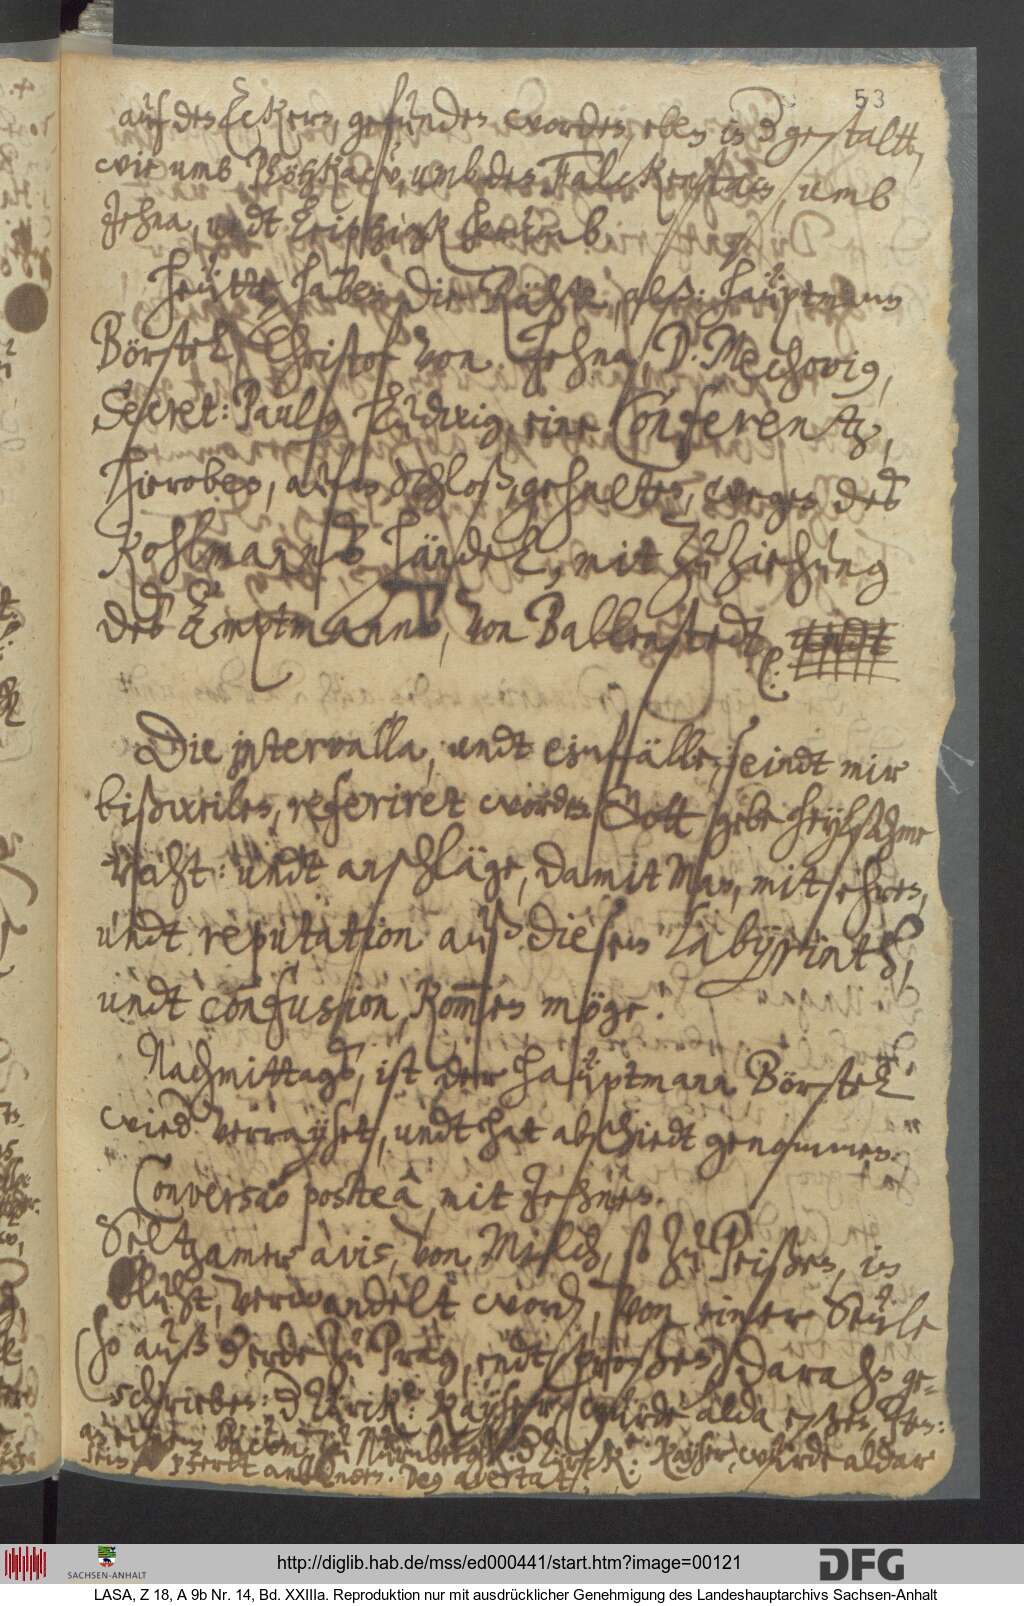 53
auf des Eckern, gefunden worden, eben in d gestaltt,
wie umb Plötzkaw, umb den Falckenstain, umb
Jehna, undt Leiptzigk herümb.
Heütte haben die Rähte, alß: Haüptmann
Börstel, Christof von Jehna, D. Mechovig,
Secret: Paulg Ludwig, eine Conferentz,
hieroben, aufm Schloß, gehalten, wegen des
Kohlmanns händel, mit zuziehung
des Amptmanns, von Ballenstedt
Die intervalla, undt einfälle, seindt mir
bißweilen, referiret worden. Gott gebe heylsahme
raht: undt anschläge, damit Man, mit ehren,
undt reputation auß diesem Labyrinth,
undt confusion, kom̄en möge.
Nachmittags, ist der Haüptmann Börstel
wied verrayset, undt hat abschiedt genommen.
Conversao posteâ, mit Jehnen.
Seltzame avis, von Milch, so zu Peißen, in
bluht, verwandelt word, von einer Seule
so auß d erde zu Prag, endtsproßen, daran ge-
schrieben: d Türck: Kayser würde alda eßen, Item:
an einem bawm zu Nürnberg: d Türck: Kayser, würde aldar
sein pferdt anbinden.
http://diglib.hab.de/mss/ed000441/start.htm?image=00121
SACHSEN-ANHALT
DFG
LASA, Z 18, A 9b Nr. 14, Bd. XXIIIa. Reproduktion nur mit ausdrücklicher Genehmigung des Landeshauptarchivs Sachsen-Anhalt